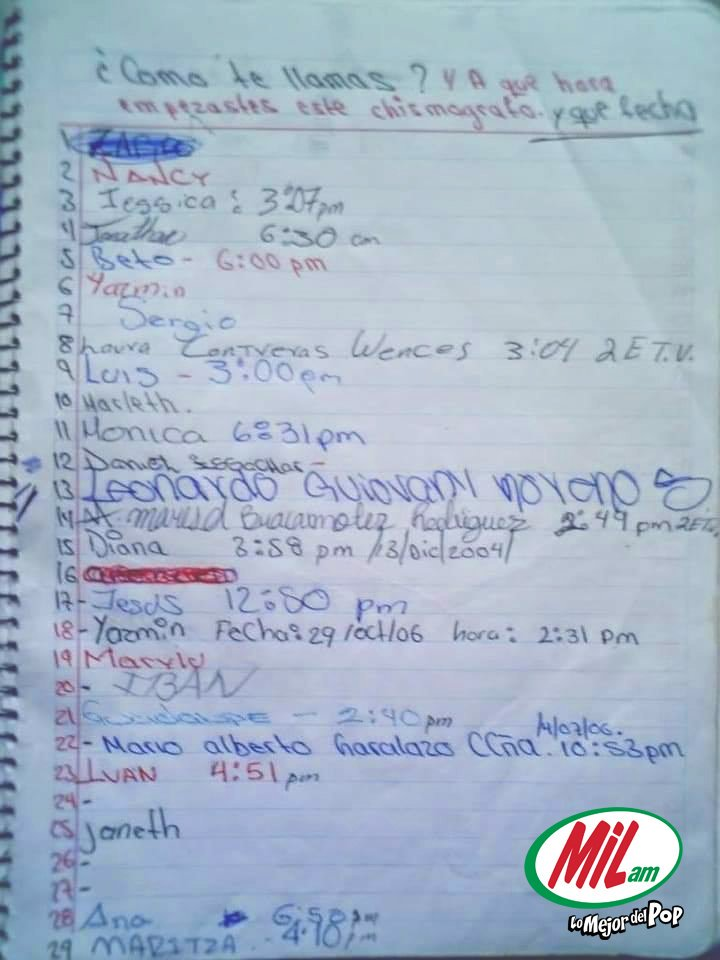 ¿Como te llamas? Y A que hora
empezastes este chismografo. y que fecha
1
2 NANCY
3 Jessica: 3:07pm
4 Jonathan 6:30 am
5 Beto - 6:00 pm
6 Yazmin
7 Sergio
8 Laura Contreras Wences 3:04 2E T.V.
9 LUIS - 3:00pm
10 Hacleth.
11 Monica 6:31pm
12 Daniel
13 Leonardo Guiovani moreno
14 Rodriguez 2:44 pm 2ET.
15 Diana 3:58 pm /13/Dic/2004/
16
17- Jesus 12:50 pm
18- Yazmin Fecha: 29/oct/06 hora: 2:31 pm
19
20- IBAN
21 Guadalupe - 2:40 pm
14/07/06.
22- Mario alberto 10:53pm
23 IVAN 4:51 pm
24-
25 janeth
26-
27-
28 Ana 6:58 pm
29 MARITZA.. 4:10 pm
MiL am
Lo Mejor del Pop